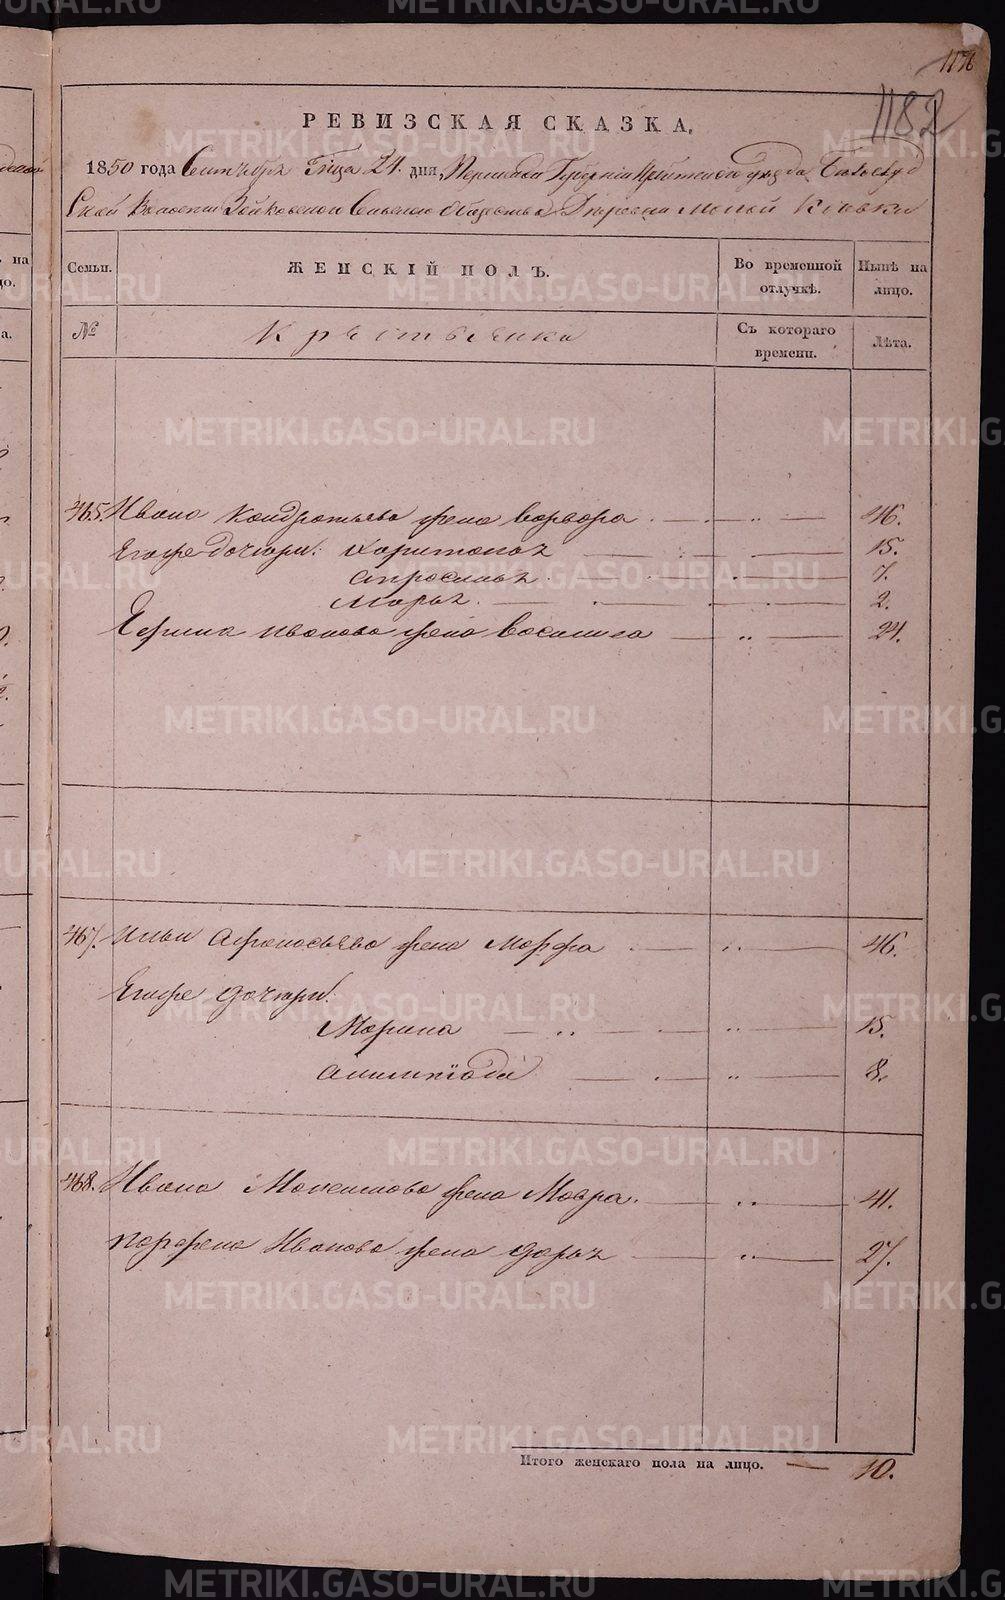 1182
РЕВИЗСКАЯ СКАЗКА,
1850 года Сентября Мца 24 дня, Пермской Губернии Ирбитского уезда Белослуд
ской Волости Зайковского Сельского Общества Деревни Малой
Семьи. ЖЕНСКІЙ ПОЛЪ. Во временной отлучкѣ. Нынѣ на лицо.
№ Крестьянки Съ котораго времени. Лѣта.
465. Ивана Кондратьева жена Варвара 46.
Егоже дочери: Харитонья 15.
Апросинья 7.
Марья 2.
Ефима Иванова жена Василиса 24.
467. Ильи Афонасьева жена Марфа 46.
Егоже дочери:
Марина 15.
Алимпіада 8.
468. Ивана Максимова жена Мавра 41.
Парфена Иванова жена Дарья 27.
Итого женскаго пола на лицо. 10.
METRIKI.GASO-URAL.RU